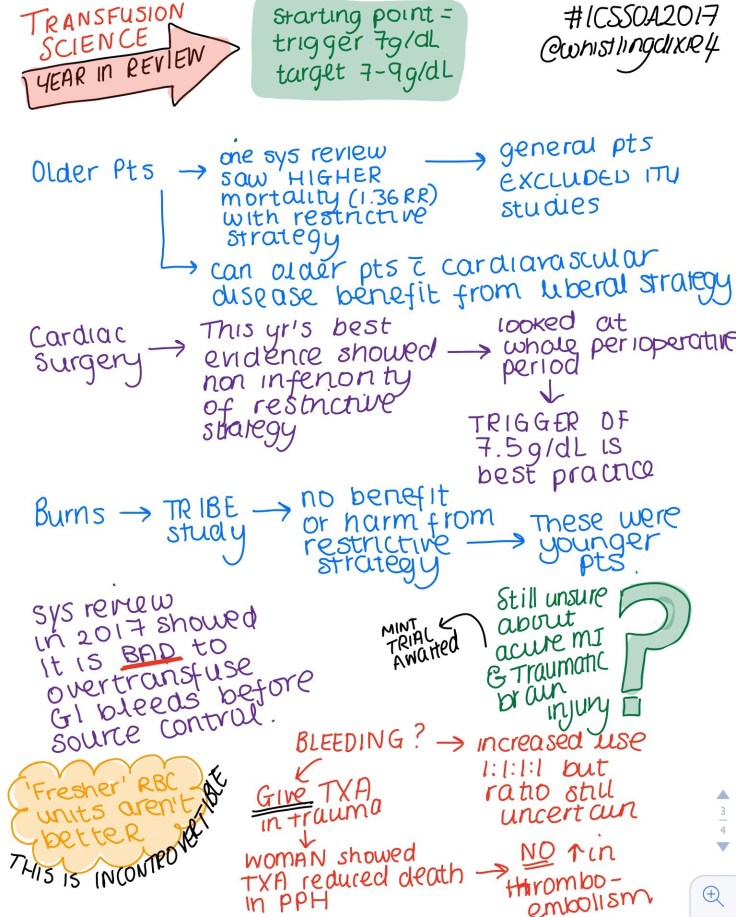 TRANSFUSION
SCIENCE
YEAR IN REVIEW
Starting point =
trigger 7g/dL
target 7-9g/dL
#ICSSOA2017
@whistlingdixie4
Older Pts →
one sys review
saw HIGHER
mortality (1.36 RR)
with restrictive
strategy
→ general pts
EXCLUDED ITU
studies
→ can older pts c̄ cardiavascular
disease benefit from liberal strategy
Cardiac
surgery →
This yr's best
evidence showed
non inferiority
of restrictive
strategy
→ looked at
whole perioperative
period
↓
TRIGGER OF
7.5g/dL is
best practice
Burns →
TRIBE
study →
no benefit
or harm from
restrictive
strategy →
These were
younger
pts.
sys review
in 2017 showed
it is BAD to
overtransfuse
GI bleeds before
source control.
MINT
TRIAL
Awaited
Still unsure
about
acure MI
& Traumatic
brain
injury
?
BLEEDING? →
increased use
1:1:1:1 but
ratio still
uncertain
Give TXA
in trauma
↓
WOMAN showed
TXA reduced death
in PPH
→ NO ↑ in
thrombo-
embolism
'Fresher' RBC
units aren't
better
THIS IS INCONTROVERTIBLE
3
4